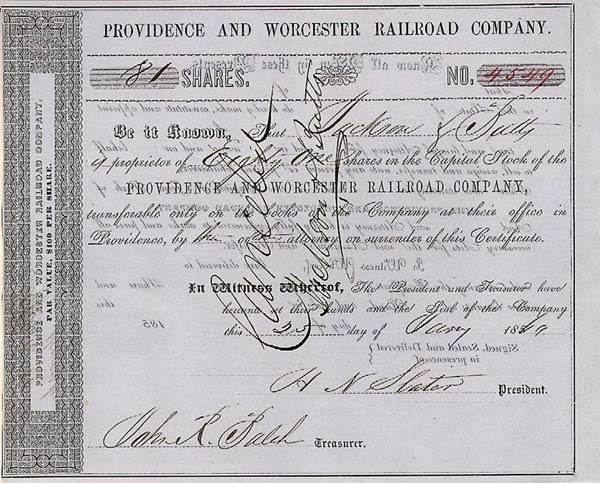 PROVIDENCE AND WORCESTER RAILROAD COMPANY.
81 SHARES. NO. 4549
Be it Known, That Jackson &
is proprietor of Eighty One shares in the Capital Stock of the
PROVIDENCE AND WORCESTER RAILROAD COMPANY,
transferable only on the books of the Company at their office in
Providence, by or attorney on surrender of this Certificate.
In Witness Whereof, The President and Treasurer have
hereunto set their Hands and the Seal of the Company
this 25 day of Jany 1849
H N Slater President.
John R. Balch Treasurer.
Cancelled
PROVIDENCE AND WORCESTER RAILROAD COMPANY.
PAR VALUE, $100 PER SHARE.